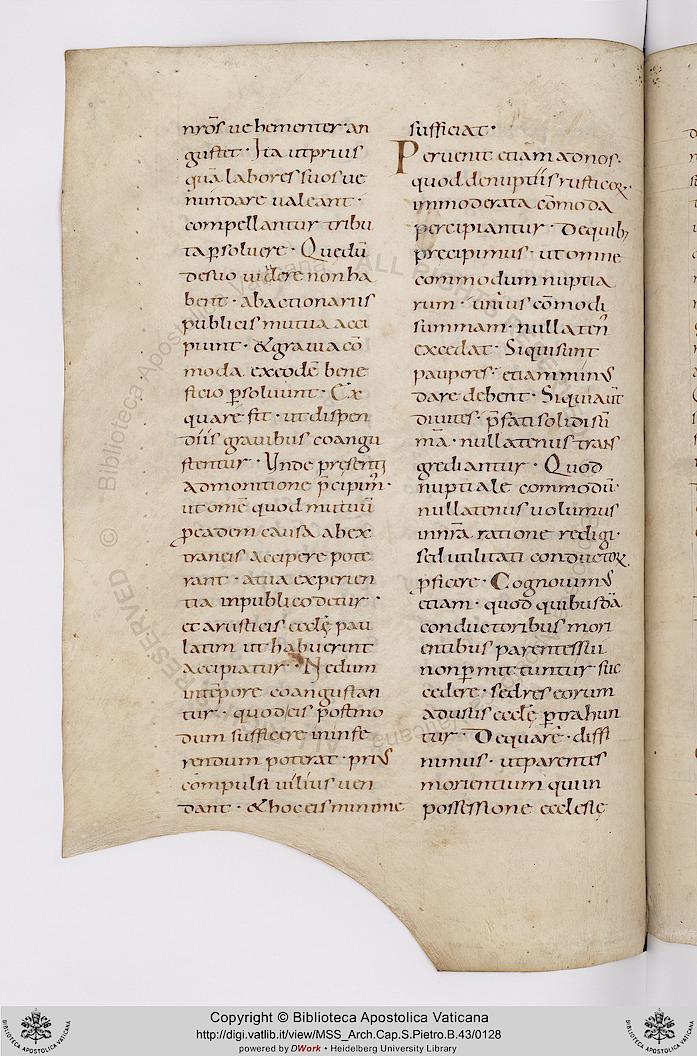 nr̄os uehementer·an
gustet· Ita utprius
quā laboressuosue
nundare ualeant·
compellantur tribu
ta ꝑsoluere· Quedū
desuo uidere nonha
bent· abactionariis
publicis mutua acci
piunt· &grauia cō
moda exeodē bene
ficio ꝑsoluunt· Ex
quare fit· ut dispen
diis grauibus coangu
stentur· Unde presenti
admonitione p̄cipim᷒·
ut omē quod mutuū
ꝓeadem causa abex
traneis accipere pote
rant· atua experien
tia inpublicodetur·
et artificis eccl̄ę pau
latim ut habuerint
accipiatur· Nedum
intēpore coangustan
tur· quodeis postmo
dum sufficere ininfe
rendum poterat· prius
cōmpulsi uilius uen
dant· &hoc eis minime
sufficiat·
Peruenit etiam adnos·
quod denuptiis rusticoꝝ·
immoderata cōmoda
percipiantur· Dequibꝫ
precipimus· utomne
commodum nuptia
rum· unius cōmodi
summam· nullaten̄
excedat· Siquisunt
pauperes· etiamminus
dare debent· Siquiaut̄
diuites· p̄fatisolidisū
mā· nullatenus trans
grediantur· Quod
nuptiale commodū·
nullatenus uolumus
innr̄a ratione redigi·
sed utilitati conductoꝝ
ꝓficere· Cognouimus
etiam· quod quibusdā
conductoribus mori
entibus parentessui
nonꝑmittuntur suc
cedere· sedres eorum
adusus eccl̄ę ꝑtrahun
tur· Dequarē· diffi
nimus· utparentes
morientium quiin
possessione ecclesię
Copyright © Biblioteca Apostolica Vaticana
http://digi.vatlib.it/view/MSS_Arch.Cap.S.Pietro.B.43/0128
powered by DWork • Heidelberg University Library